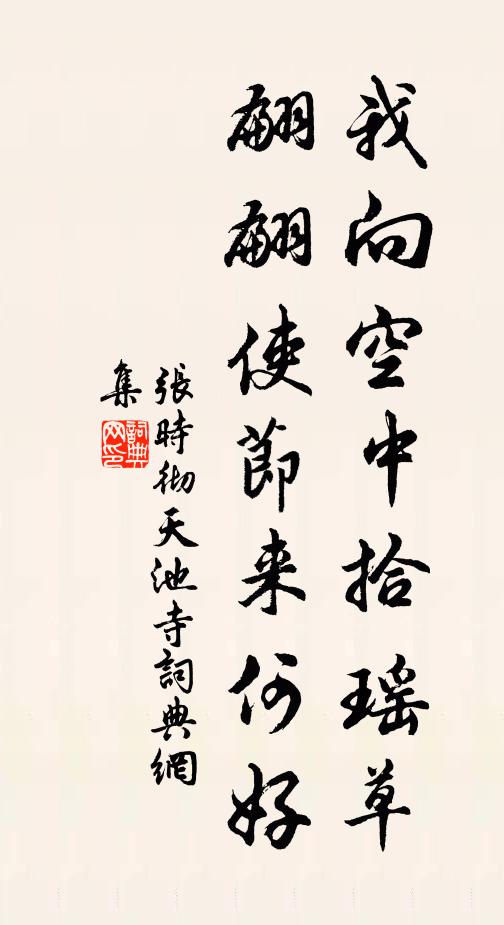 我向空中拾瑶草
翩翩使節来何好
張時彻天池寺詞典網
集
詞典
网印